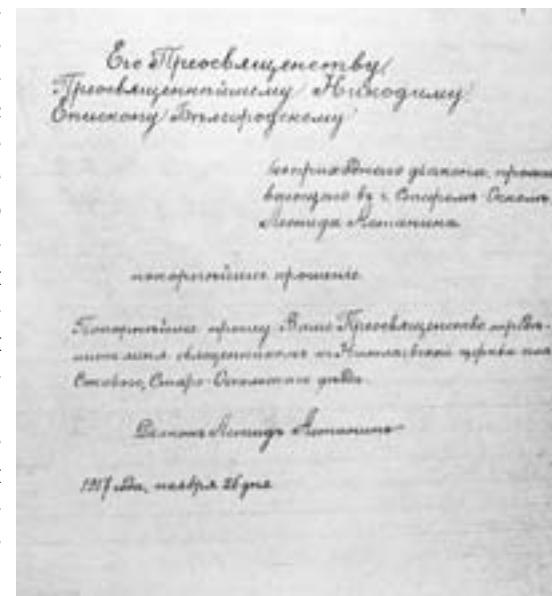 Его Преосвященству
Преосвященнѣйшему Никодиму
Епископу Бѣлгородскому
безприходнаго діакона, прожи
вающаго въ г. Старомъ Осколѣ,
Леонида
покорнѣйшее прошеніе.
Покорнѣйше прошу Ваше Преосвященство опредѣ-
лить меня священникомъ къ Николаевской церкви
Старо-Оскольскаго уѣзда.
Діаконъ Леонидъ
1917 года, ноября 26 дня